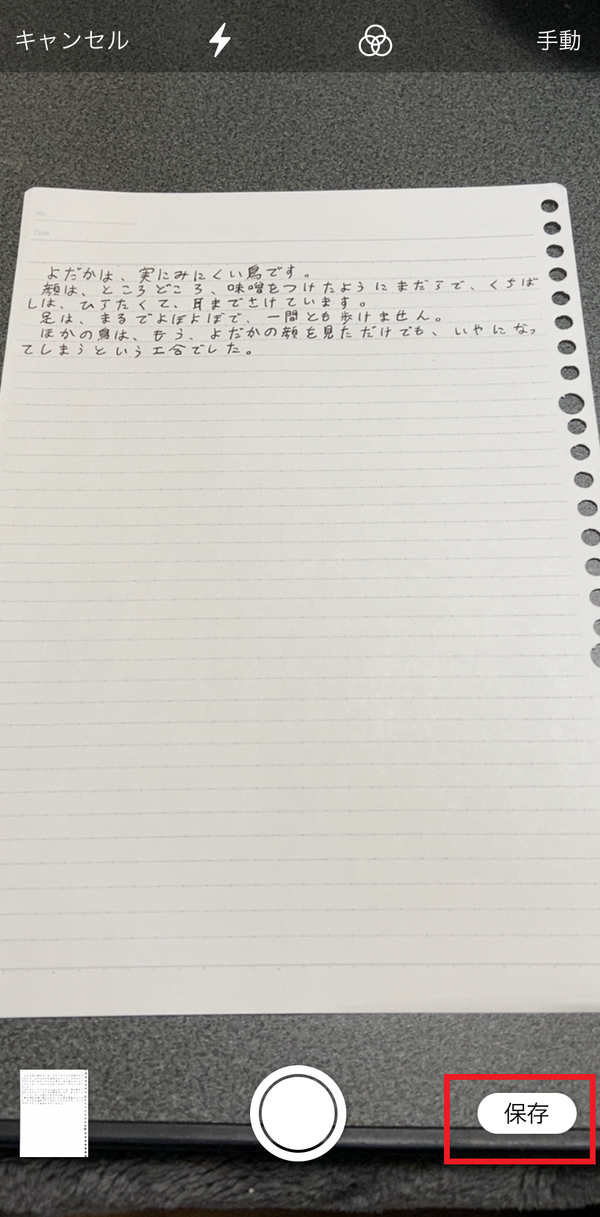 キャンセル
手動
No.
Date
よだかは、実にみにくい鳥です。
顔は、ところどころ、味噌をつけたようにまだらで、くちば
しは、ひらたくて、耳までさけています。
足は、まるでよぼよぼで、一間とも歩けません。
ほかの鳥は、もう、よだかの顔を見ただけでも、いやになっ
てしまうという工合でした。
保存